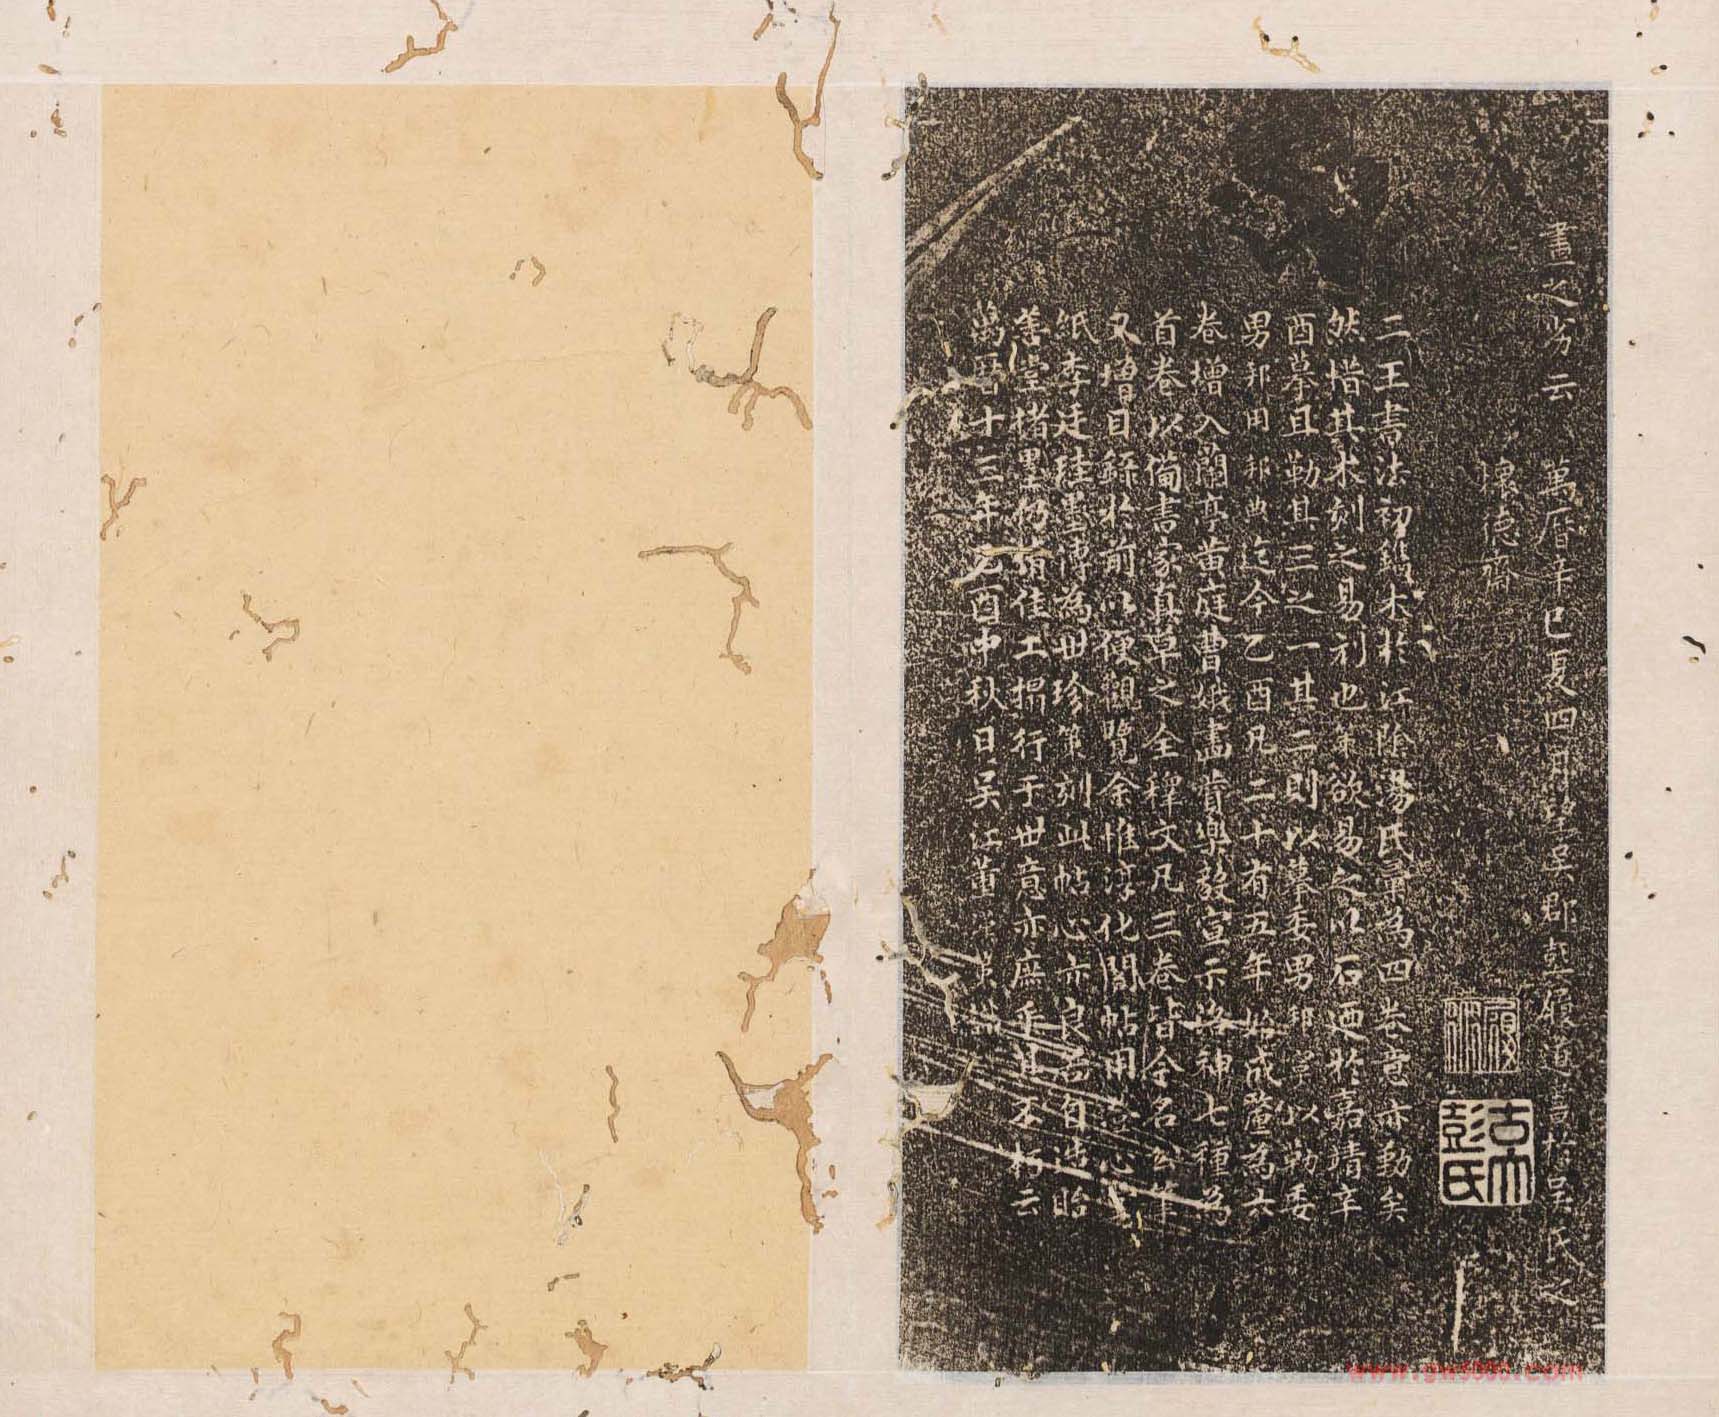 畫之劣云 萬曆辛巳夏四月望吳郡彭履道書於吳氏之
懷德齋
二王書法初鋟木於江陰湯氏彙為四卷意亦勤矣
然惜其木刻之易刓也余欲易之以石迺於嘉靖辛
酉摹且勒其三之一其二則以摹委男邦寧以勒委
男邦用邦典迄今乙酉凡二十有五年始成釐為六
卷增入蘭亭黃庭曹娥畫贊樂毅宣示洛神七種為
首卷以備書家真草之全釋文凡三卷皆今名公筆
又增目錄於前以便觀覽余惟淳化閣帖用澄心
紙李廷珪墨傳為世珍第刻此帖心亦良苦自謂貽
善堂楮墨仍須佳工搨行于世意亦庶乎其不朽云
萬曆十三年乙酉中秋日吳江董
履道
古吳彭氏
www.gw5000.com